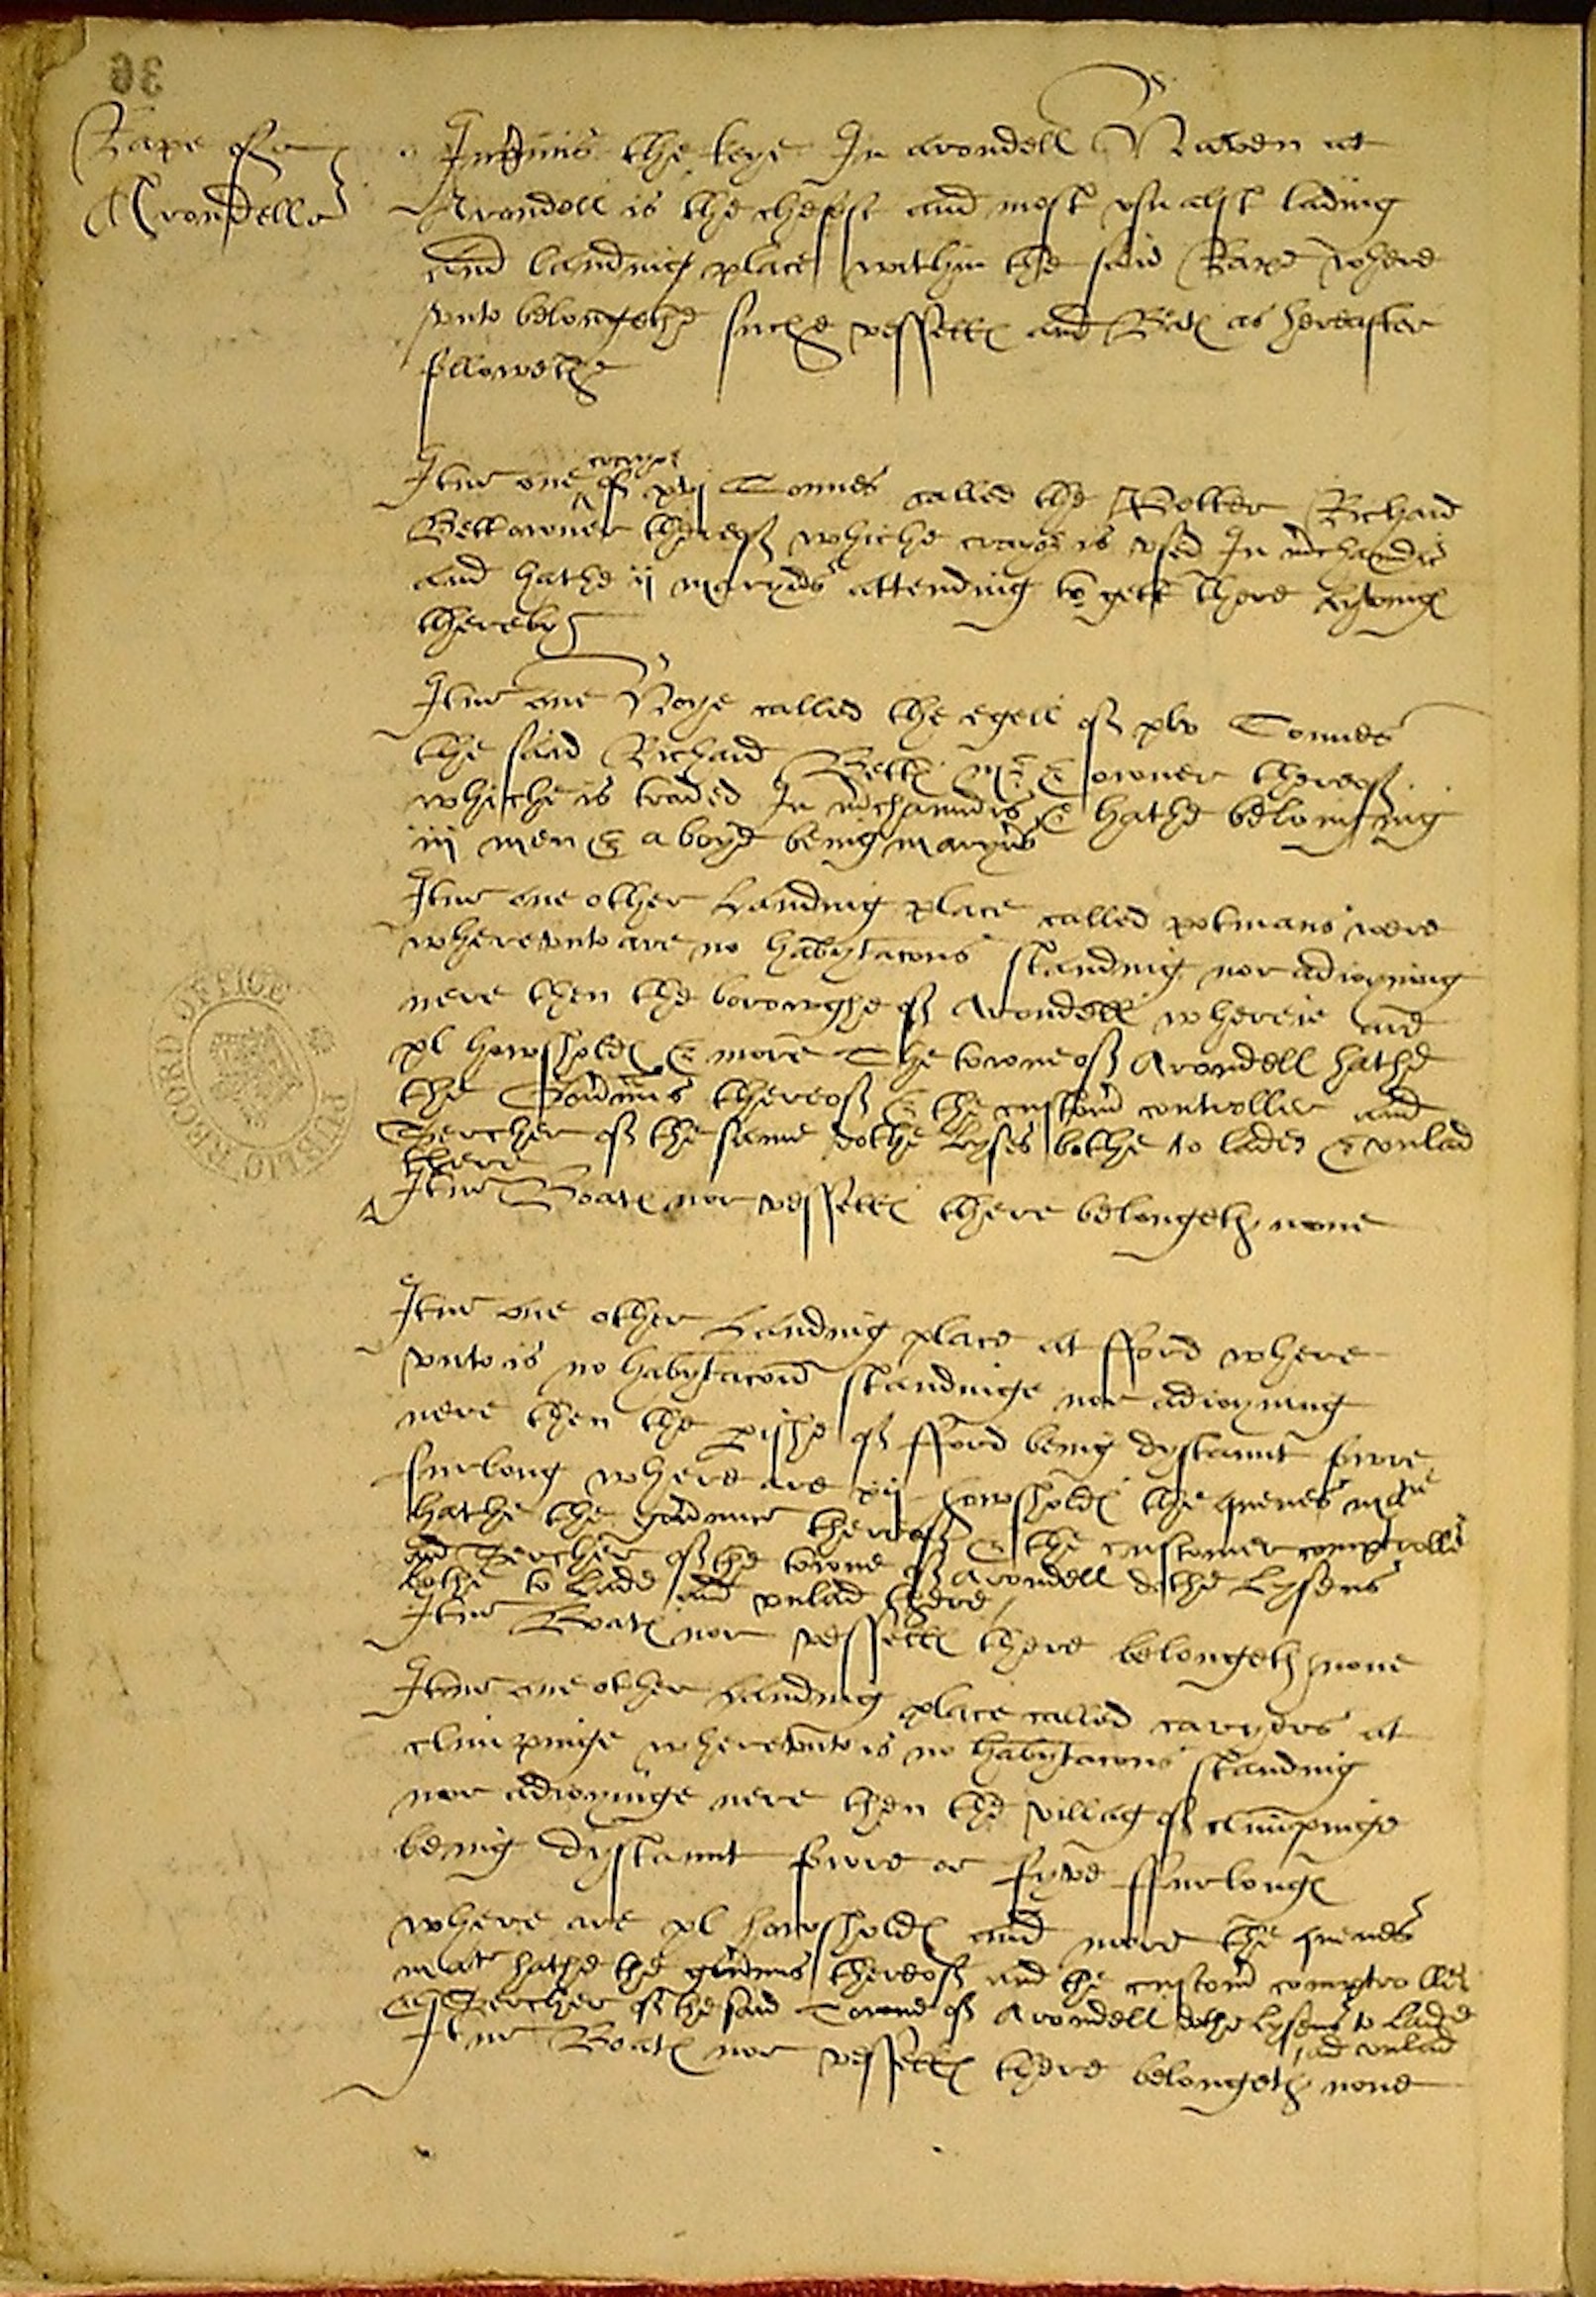 36
Rape of
Arondell
Inprimis the keye In arondell Haven at
Arondell is the cheffst and most usualst lading
and landing place within the said Rape where
unto belongethe suche vessells and Botes as hereafter
followethe
Item one ^crayer of xvj Tonnes called the Richard
Bett owner thereof whiche crayer is used In mchandis
and hathe ij maryners attending to gett there lyving
thereby
Item one Hoye called the egell of xlv Tonnes
the said Richard Bettes Mr & owner thereof
whiche is traded In mchaundis & hathe belonging
iij men & a boye being maryners
Item one other Landing place called potmans were
whereunto are no habytacons standing nor adioyning
nere then the borowghe of Arondell where are
xl howsholdes & more The towne of Arondell hathe
the thereof & the customer controller and
Sercher of the same dothe lyses bothe to lade & unlad
there
Item Boates nor vessells there belongeth none
Item one other Landing place at fford where
unto is no habytacon standinge nor adioyning
nere then the pishe of fford being dystaunt fowre
furlong where are xij howsholdes the quenes matie
hathe the thereof & the customer comptroller
and Sercher of the towne of Arondell dothe Lysens
bothe to Lade and unlad there
Item Boates nor vessells there belongeth none
Item one other Landing place called caryers at
climpinge whereunto is no habytacons standing
nor adioyninge nere then the villag of climpinge
being dystaunt fowre or fyve ffurlonges
where are xl howsholdes and more the quenes
matie hathe the thereof and the customer comptroller
& Sercher of the said Towne of Arondell dothe Lysens to Lade
and unlad
Item Boates nor vessells there belongeth none
PUBLIC RECORD OFFICE